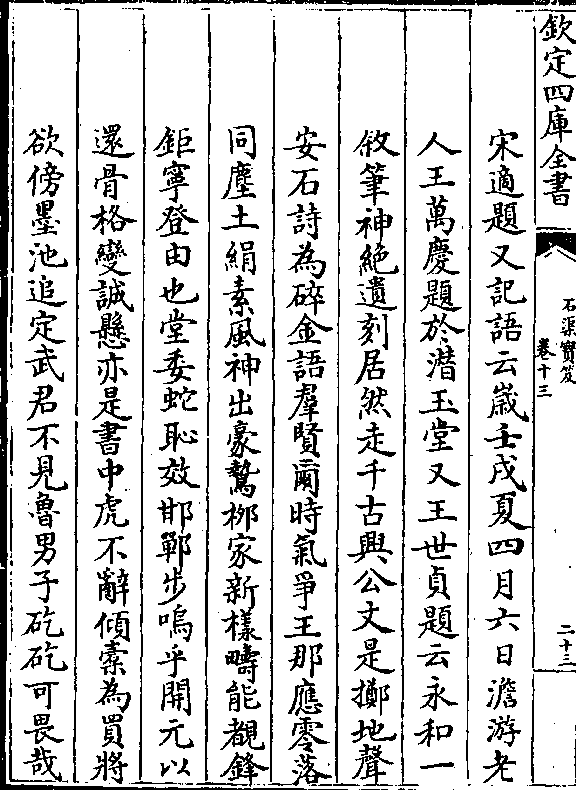 欽定四庫全書
石渠寳笈
卷十三
二十三
宋適題又記語云嵗壬戌夏四月六日澹游老
人王萬慶題於潛玉堂又王世貞題云永和一
敘筆神絶遺刻居然走千古興公文是擲地聲
安石詩為碎金語羣賢爾時氣爭王那應零落
同塵土絹素風神出豪鷙栁家新樣疇能覩鋒
鉅寧登由也堂委蛇恥效邯鄲步嗚乎開元以
還骨格變誠懸亦是書中虎不辭傾橐為買將
欲傍墨池追定武君不見魯男子矻矻可畏哉